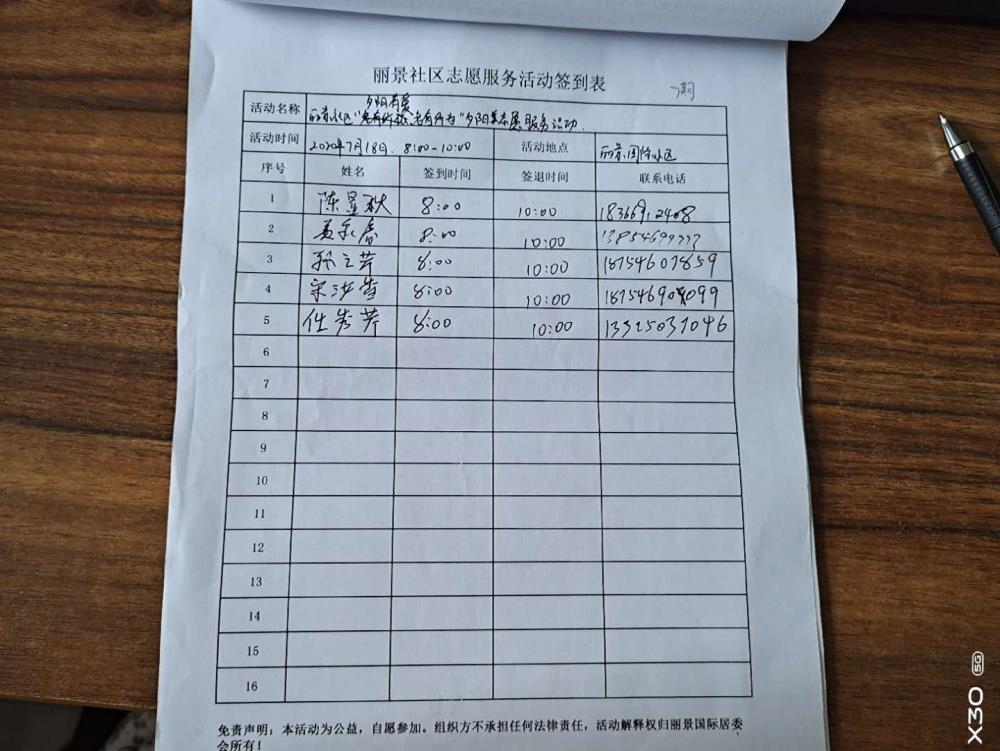 丽景社区志愿服务活动签到表
7期
夕阳有爱
活动名称 丽景社区"老有所为"夕阳美志愿服务活动
活动时间 2020年7月18日. 8:00-10:00 活动地点 丽景国际社区
序号 姓名 签到时间 签退时间 联系电话
1 陈显秋 8:00 10:00
2 8:00 10:00 13854699777
3 孙之芹 8:00 10:00 18754607859
4 宋洪雪 8:00 10:00
5 任秀芹 8:00 10:00
6
7
8
9
10
11
12
13
14
15
16
免责声明：本活动为公益，自愿参加。组织方不承担任何法律责任，活动解释权归丽景国际居委
会所有！
X30 5G